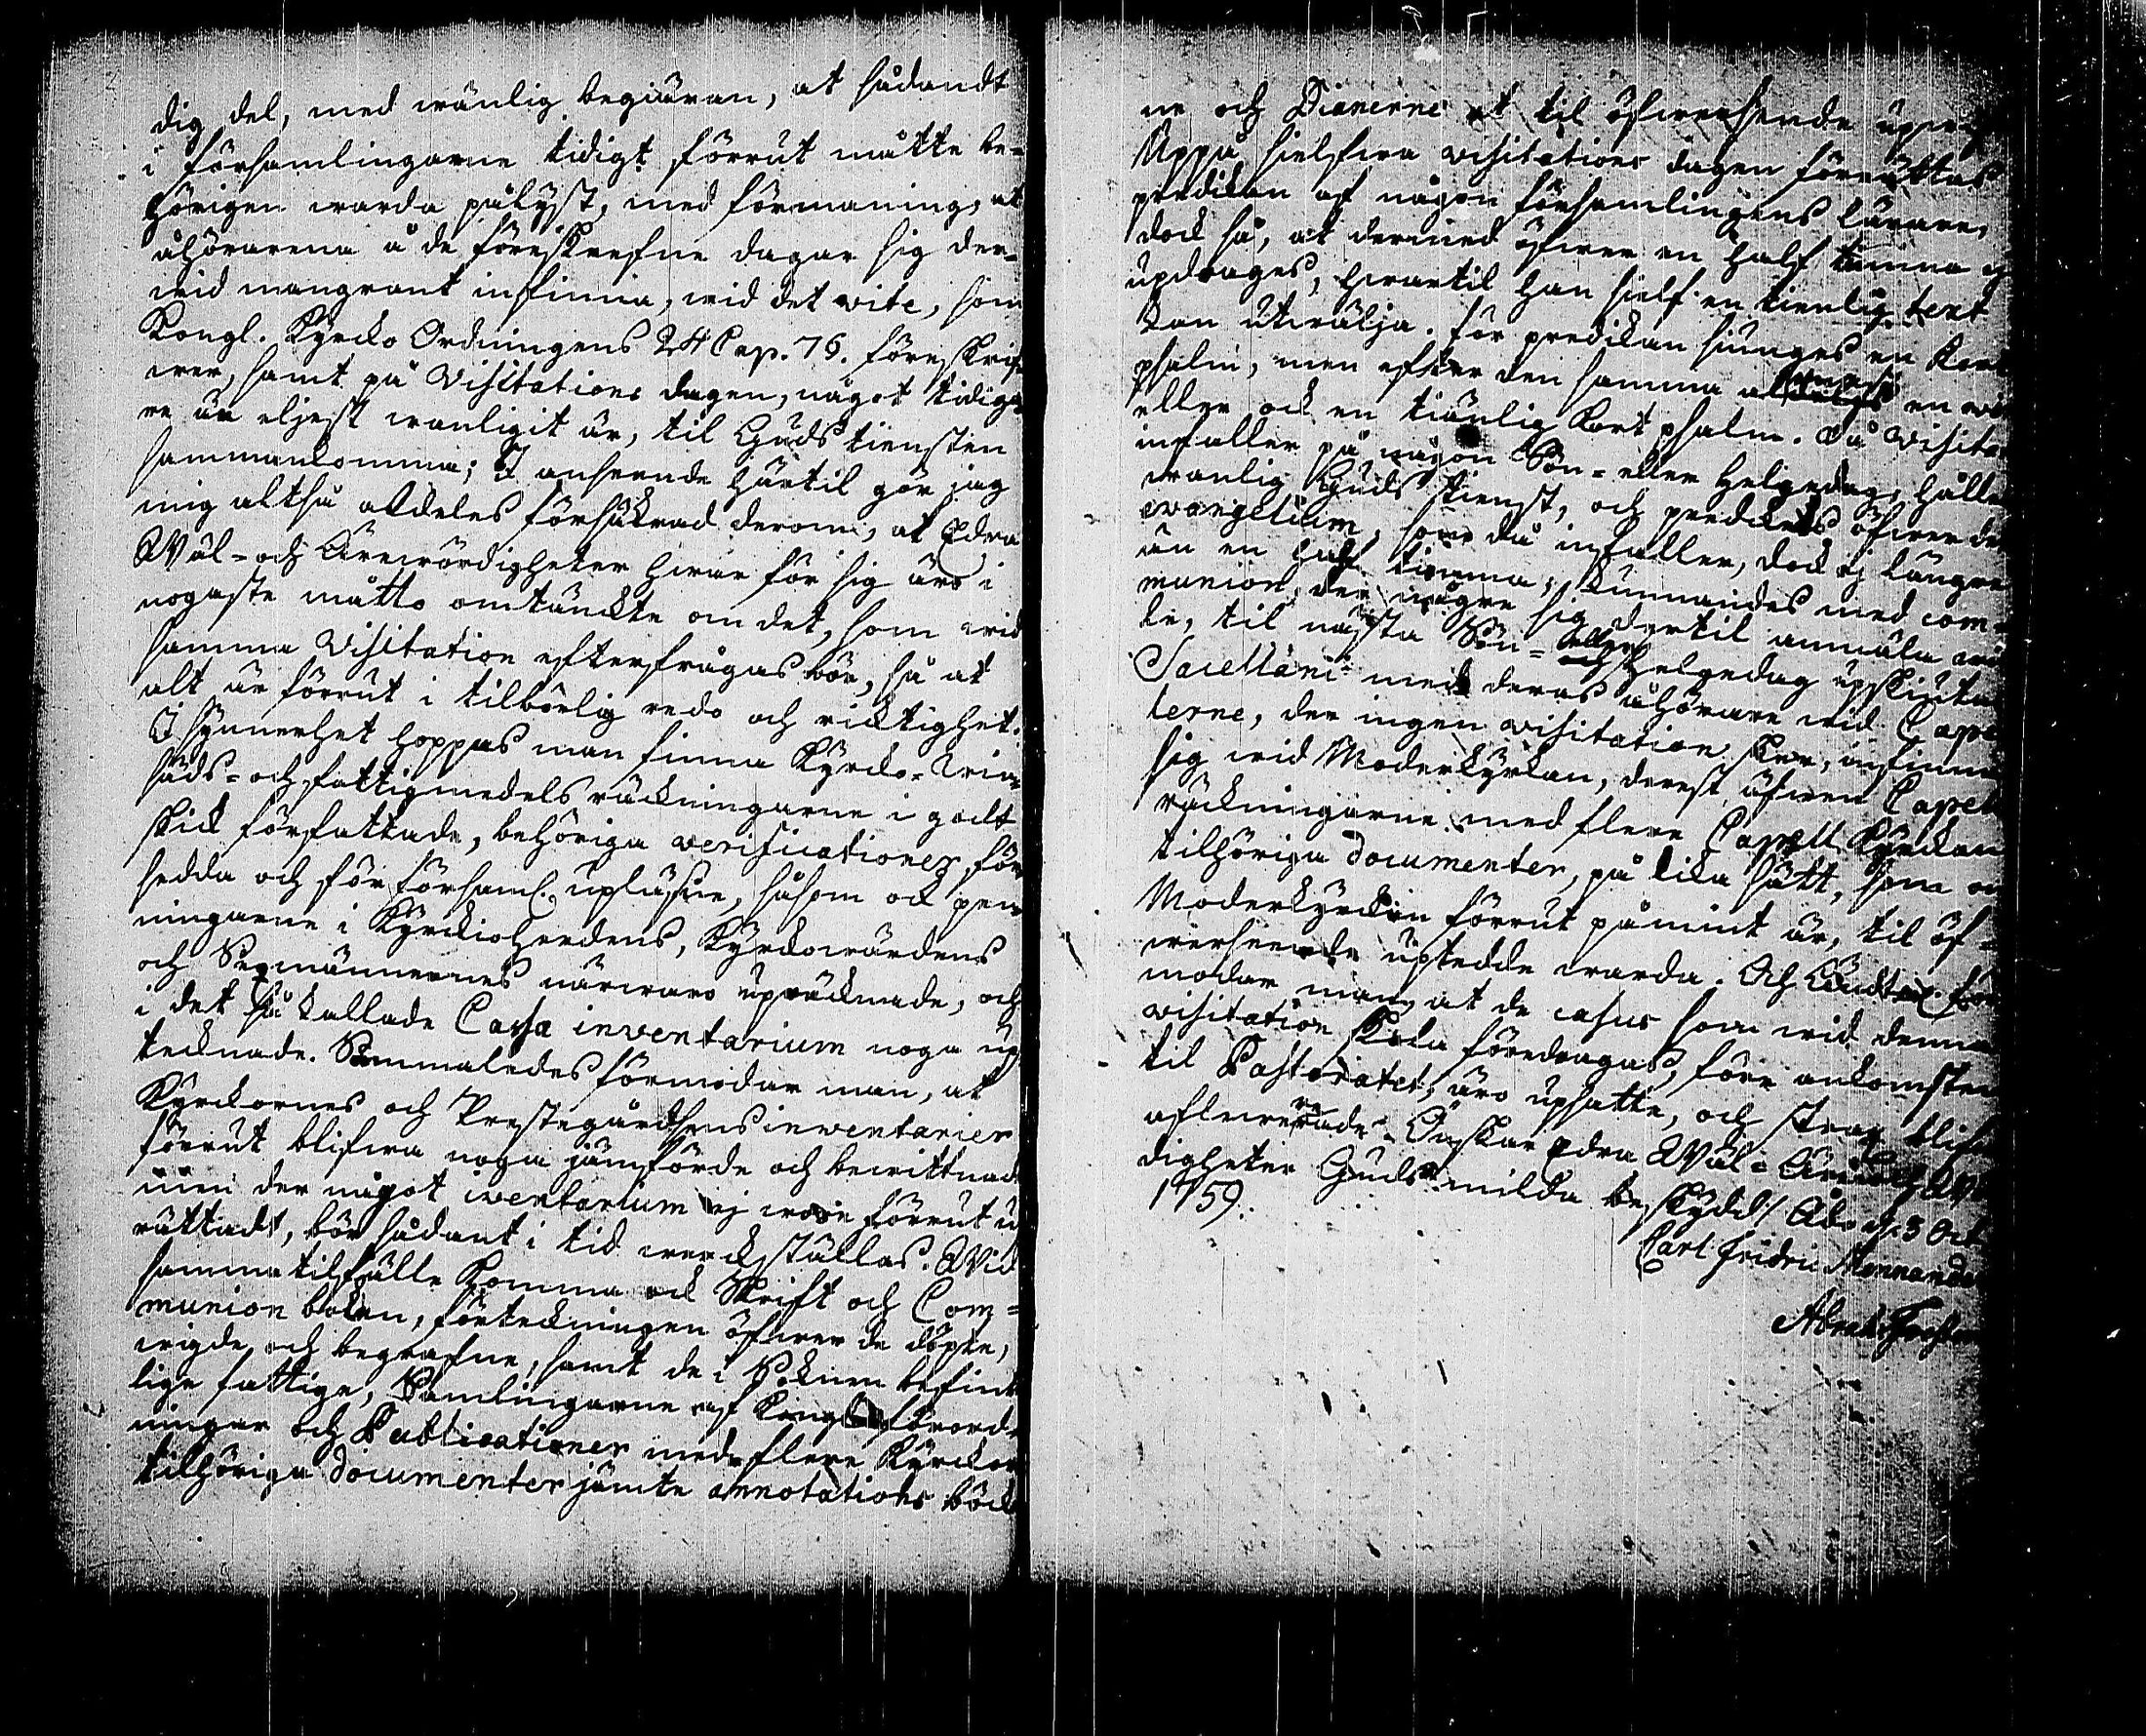 dig del, med wänlig begiäran, at sådandt
i församlingarne tidigt förrut måtte be-
hörigen warda pålyst, med förmaning, at
åhörarena å de föreskrefne dagar sig der-
wid mangrant infinna, wid det wite, som
Kongl. Kyrcko Ordningens 24 Cap. 76. föreskrif-
wer, samt på Visitations dagen, något tidiga
re än eljest wanligit är, til Guds tiensten
sammankomma; I anseende härtil gör jag
mig altså aldeles försäkrad derom, at Edra
Wäl- och Ärewördigheter hwar för sig äro i
nogaste måtto omtänckte om det, som wid
samma Visitation efterfrågas bör, så at
alt är förrut i tilbörlig redo och richtighet.
I synnerhet hoppas man finna Kyrcko-
säds- och fattigmedels räckningarne i godt
skick författade, behöriga verificationer för
sedda och för församl. upläsne, såsom ock pen
ningarne i Kyrckioherdens, Kyrckowärdens
och Sexmännernes närwaro upräcknade, och
i det så kallade Cassa inventarium noga up
tecknade. Sammaledes förmodar man, at
Kyrckornes och Prestegårdsens inventarier
förrut blifwa noga jämförde och bewittnade
men der något inventarium ej wore förrut u
rättadt, bör sådant i tid werckställas. Wid
samma tilfälle komma ock Skrift och Com-
munion boken, förteckningen öfwer de döpte,
wigde och begrafne, samt de i Soknen befint
lige fattige, Samlingarne af Kongl. förord-
ningar och Publicationer med flere Kyrckor
tilhöriga documenter jämte annotations böck
ne och Diarierne at til öfwerseende upwi
Uppå sielfwa visitations dagen förrättas
predikan af någon församlingens Lärare,
dock så, at dermed öfwer en half timma ej
updrages, hwartil han sielf en tienlig text
kan utwälja. För predikan siunges en kort
psalm, men efter den samma en
eller ock en tiänlig kort psalm. Då visita
infaller på någon Sön- eller Helgedag, hålles
wanlig Guds tienst, och predikas öfwer det
evangelium, som då infaller, dock ej längre
än en half timma; kunnandes med com-
munion, der någre sig dertil anmäla
de, til nästa Sön- eller Helgedag upskiuta
Sacellani med deras åhörare wid Capel
lerne, der ingen visitation sker, infinna
sig wid Moderkyrkan, derest äfwen Capels
räckningarne med flere Capell Kyrckan
tilhöriga documenter, på lika sätt, som om
Moderkyrckan förrut påmint är, til öf-
werseende upstedde warda. Och
modar man, at de casus som wid denna
visitation skola föredragas, före ankomsten
til Pastoratet, äro upsatte, och strax blifwa
aflevererade. Önskar Edra Wäl- och
digheter Guds milda beskydd! Åbo d. 3 Oct
1759.
Carl Fridric Mennander
Abrah.